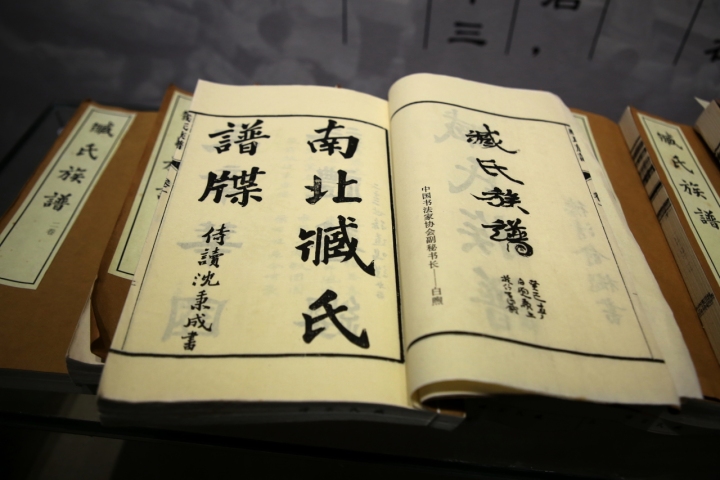 三
臧氏族譜
中国书法家协会副秘书长——白煦
南北臧氏
譜牒
侍讀沈秉成書
臧氏族譜
臧氏族譜